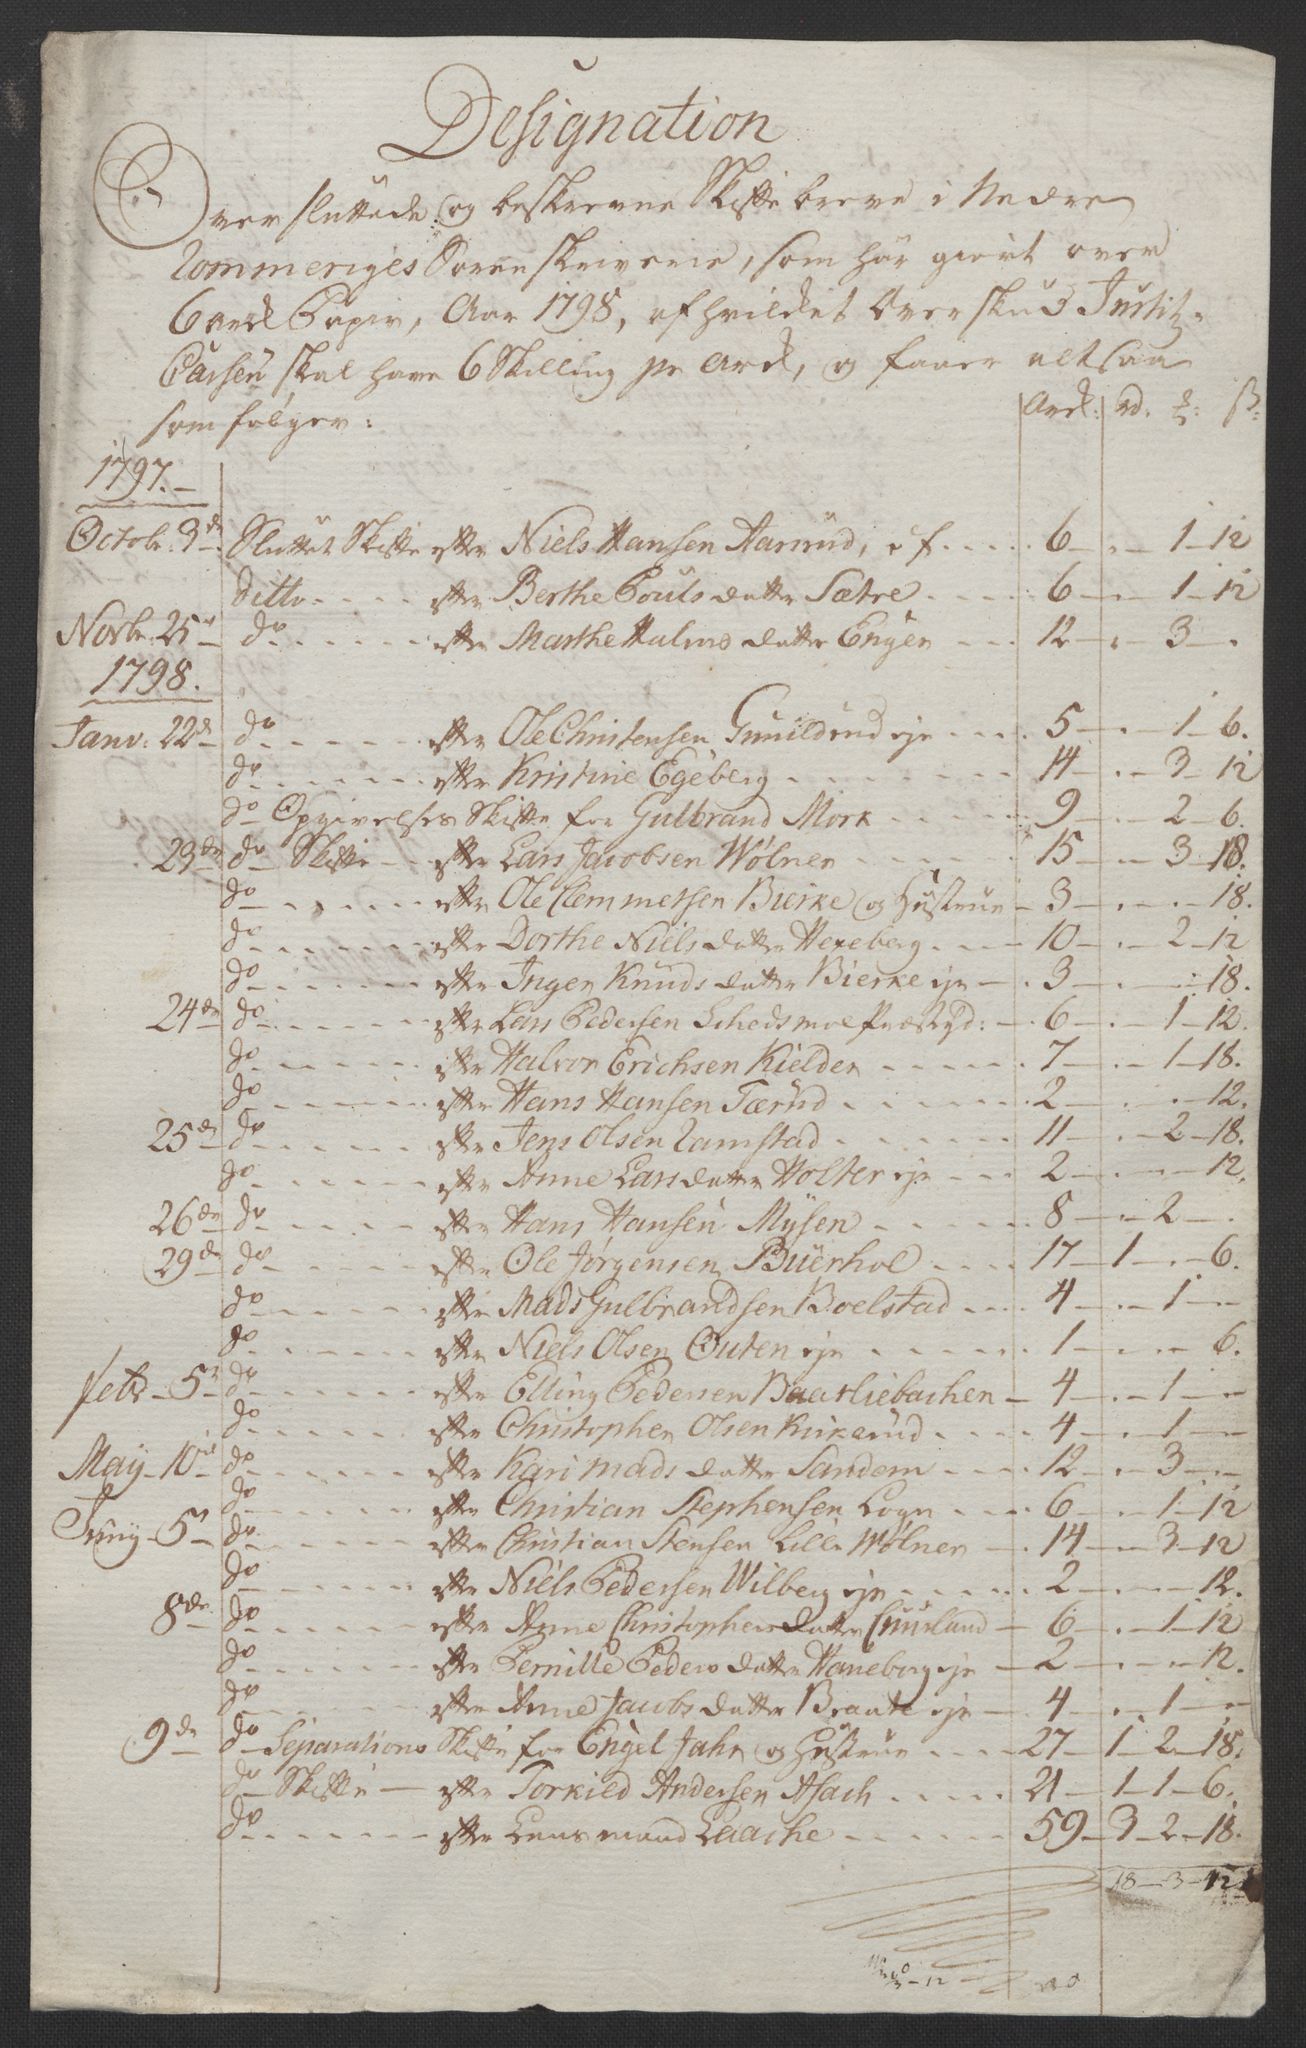 Designation
Over sluttede og beskrevne Skiftebreve i Nedre
Rommeriges Sorenskriverie, som har giort over
6 ark Papir, Aar 1798, af hvilket Overskud Justitz-
Cassen skal have 6 Skilling pr Ark, og faaer altsaa
som følger:
Ark: rd. ß:
1797.
Octobr. 3de Sluttet Skifte efter Niels Hansen Aamud, af 6 - 1 - 12
Ditto efter Berthe Pouls datter Sætre 6 - 1 - 12
Novbr. 25de do efter Marthe Halvors datter Engen 12 - 3 -
1798.
Janv. 22de do efter Ole Christensen Gunildrud eje 5 - 1 - 6.
do efter Kristine Egeberg 14 - 3 - 12
do Opgivelses Skifte for Gulbrand Mork 9 - 2 - 6.
23de do Skifte efter Lars Jacobsen Wølner 15 - 3 - 18.
do efter Ole Clemmetsen Bierke og Hustrue 3 - 18.
do efter Dorthe Niels datter Hexeberg 10 - 2 - 12
do efter Inger Knuds datter Bierke eje 3 - 18.
24de do efter Lars Pedersen Schedsmoe Præstgd: 6 - 1 - 12.
do efter Halvor Erichsen Kielder 7 - 1 - 18.
do efter Hans Hansen Tærud 2 - 12.
25de do efter Jens Olsen Ramstad 11 - 2 - 18.
do efter Anne Lars datter Holter eje 2 - 12.
26de do efter Hans Hansen Mysen 8 - 2 -
29de do efter Ole Jørgensen Buerhol 17 - 1 - 6.
do efter Mads Gulbrandsen Boelstad 4 - 1 -
do efter Niels Olsen Outen eje 1 - 6.
Febr. 5te do efter Elling Pedersen Baarliebachen 4 - 1 -
do efter Christopher Olsen Kirkerud 4 - 1 -
May 10de do efter Kari Mads datter Sandem 12 - 3 -
do efter Christian Stephensen Logn 6 - 1 - 12
Juny 5te do efter Christian Stensen Lille Wølner 14 - 3 - 12
do efter Niels Pedersen Wilberg eje 2 - 12.
8de do efter Anne Christophers datter 6 - 1 - 12
do efter Pernille Peders datter Haneborg eje 2 - 12.
do efter Anne Jacobs datter Braate eje 4 - 1 -
9de do Separations Skifte for Engel Jahn og Hustrue 27 - 1 - 2 - 18.
do Skifte efter Torkild Andersen Asach 21 - 1 - 1 - 6.
do efter Lensmand Laache 59 - 3 - 2 - 18.
18 - 3 - 12